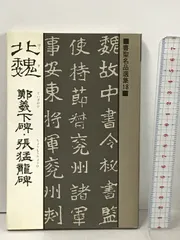 ■書聖名品選集18■
北魏
鄭羲下碑・張猛龍碑
魏故中書令秘書監
使持節督兗州諸軍
事安東將軍兗州刾